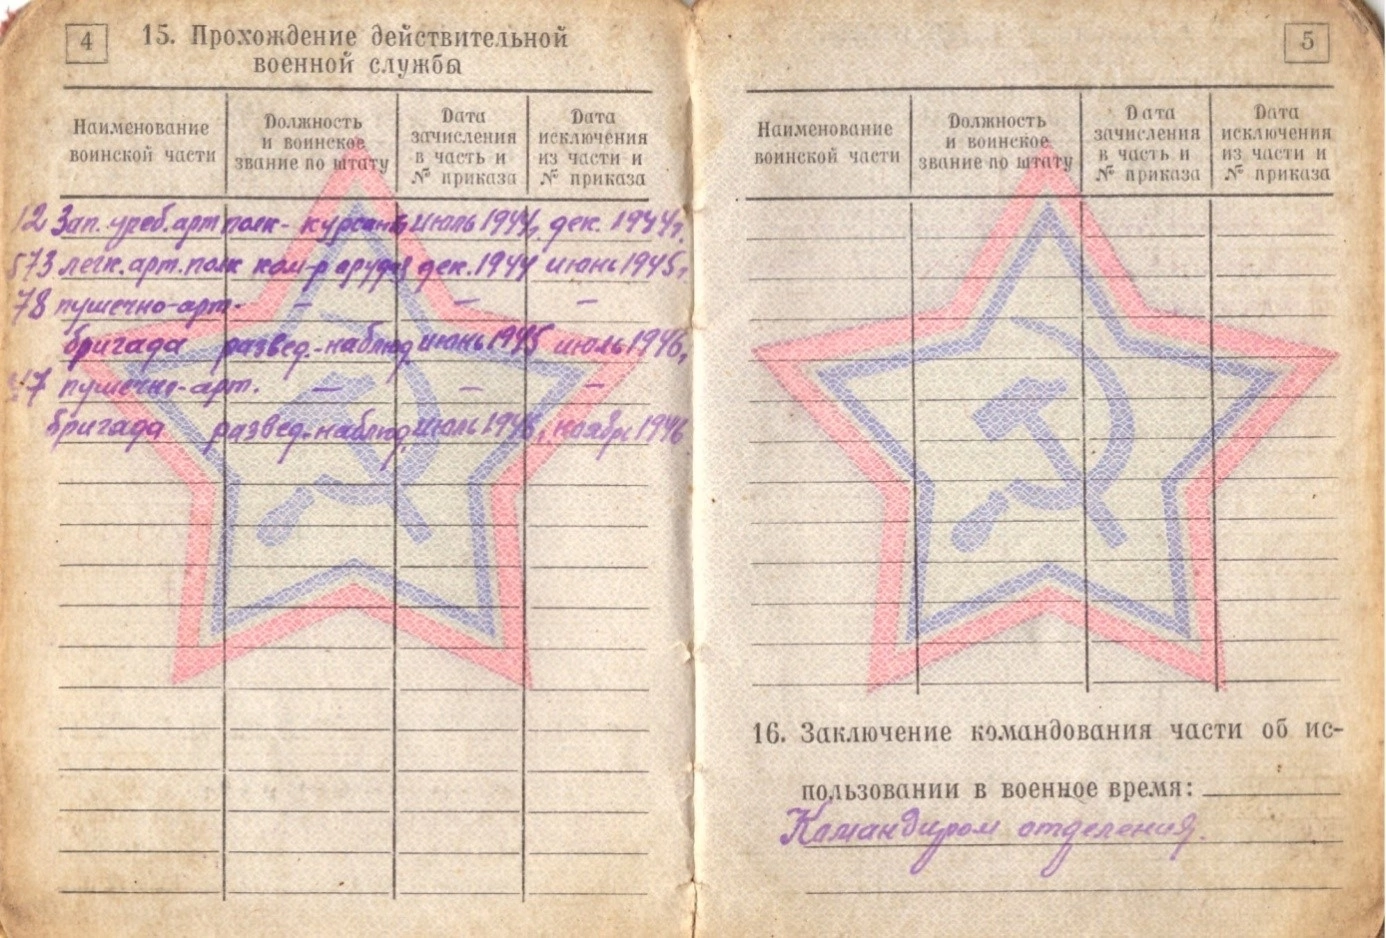 4
15. Прохождение действительной
военной службы
Наименование воинской части
Должность и воинское звание по штату
Дата зачисления в часть и № приказа
Дата исключения из части и № приказа
12 Зап. учеб. арт полк - курсант июль 1944г. дек. 1944г.
573 легк. арт. полк ком-р орудия дек. 1944 июнь 1945г.
78 пушечно-арт. — — —
бригада развед.-наблюд. июнь 1945 июль 1946г.
17 пушечно-арт. — — —
бригада развед.-наблюд. июль 1946г. ноябрь 1946
5
Наименование воинской части
Должность и воинское звание по штату
Дата зачисления в часть и № приказа
Дата исключения из части и № приказа
16. Заключение командования части об ис-
пользовании в военное время:
Командиром отделения.